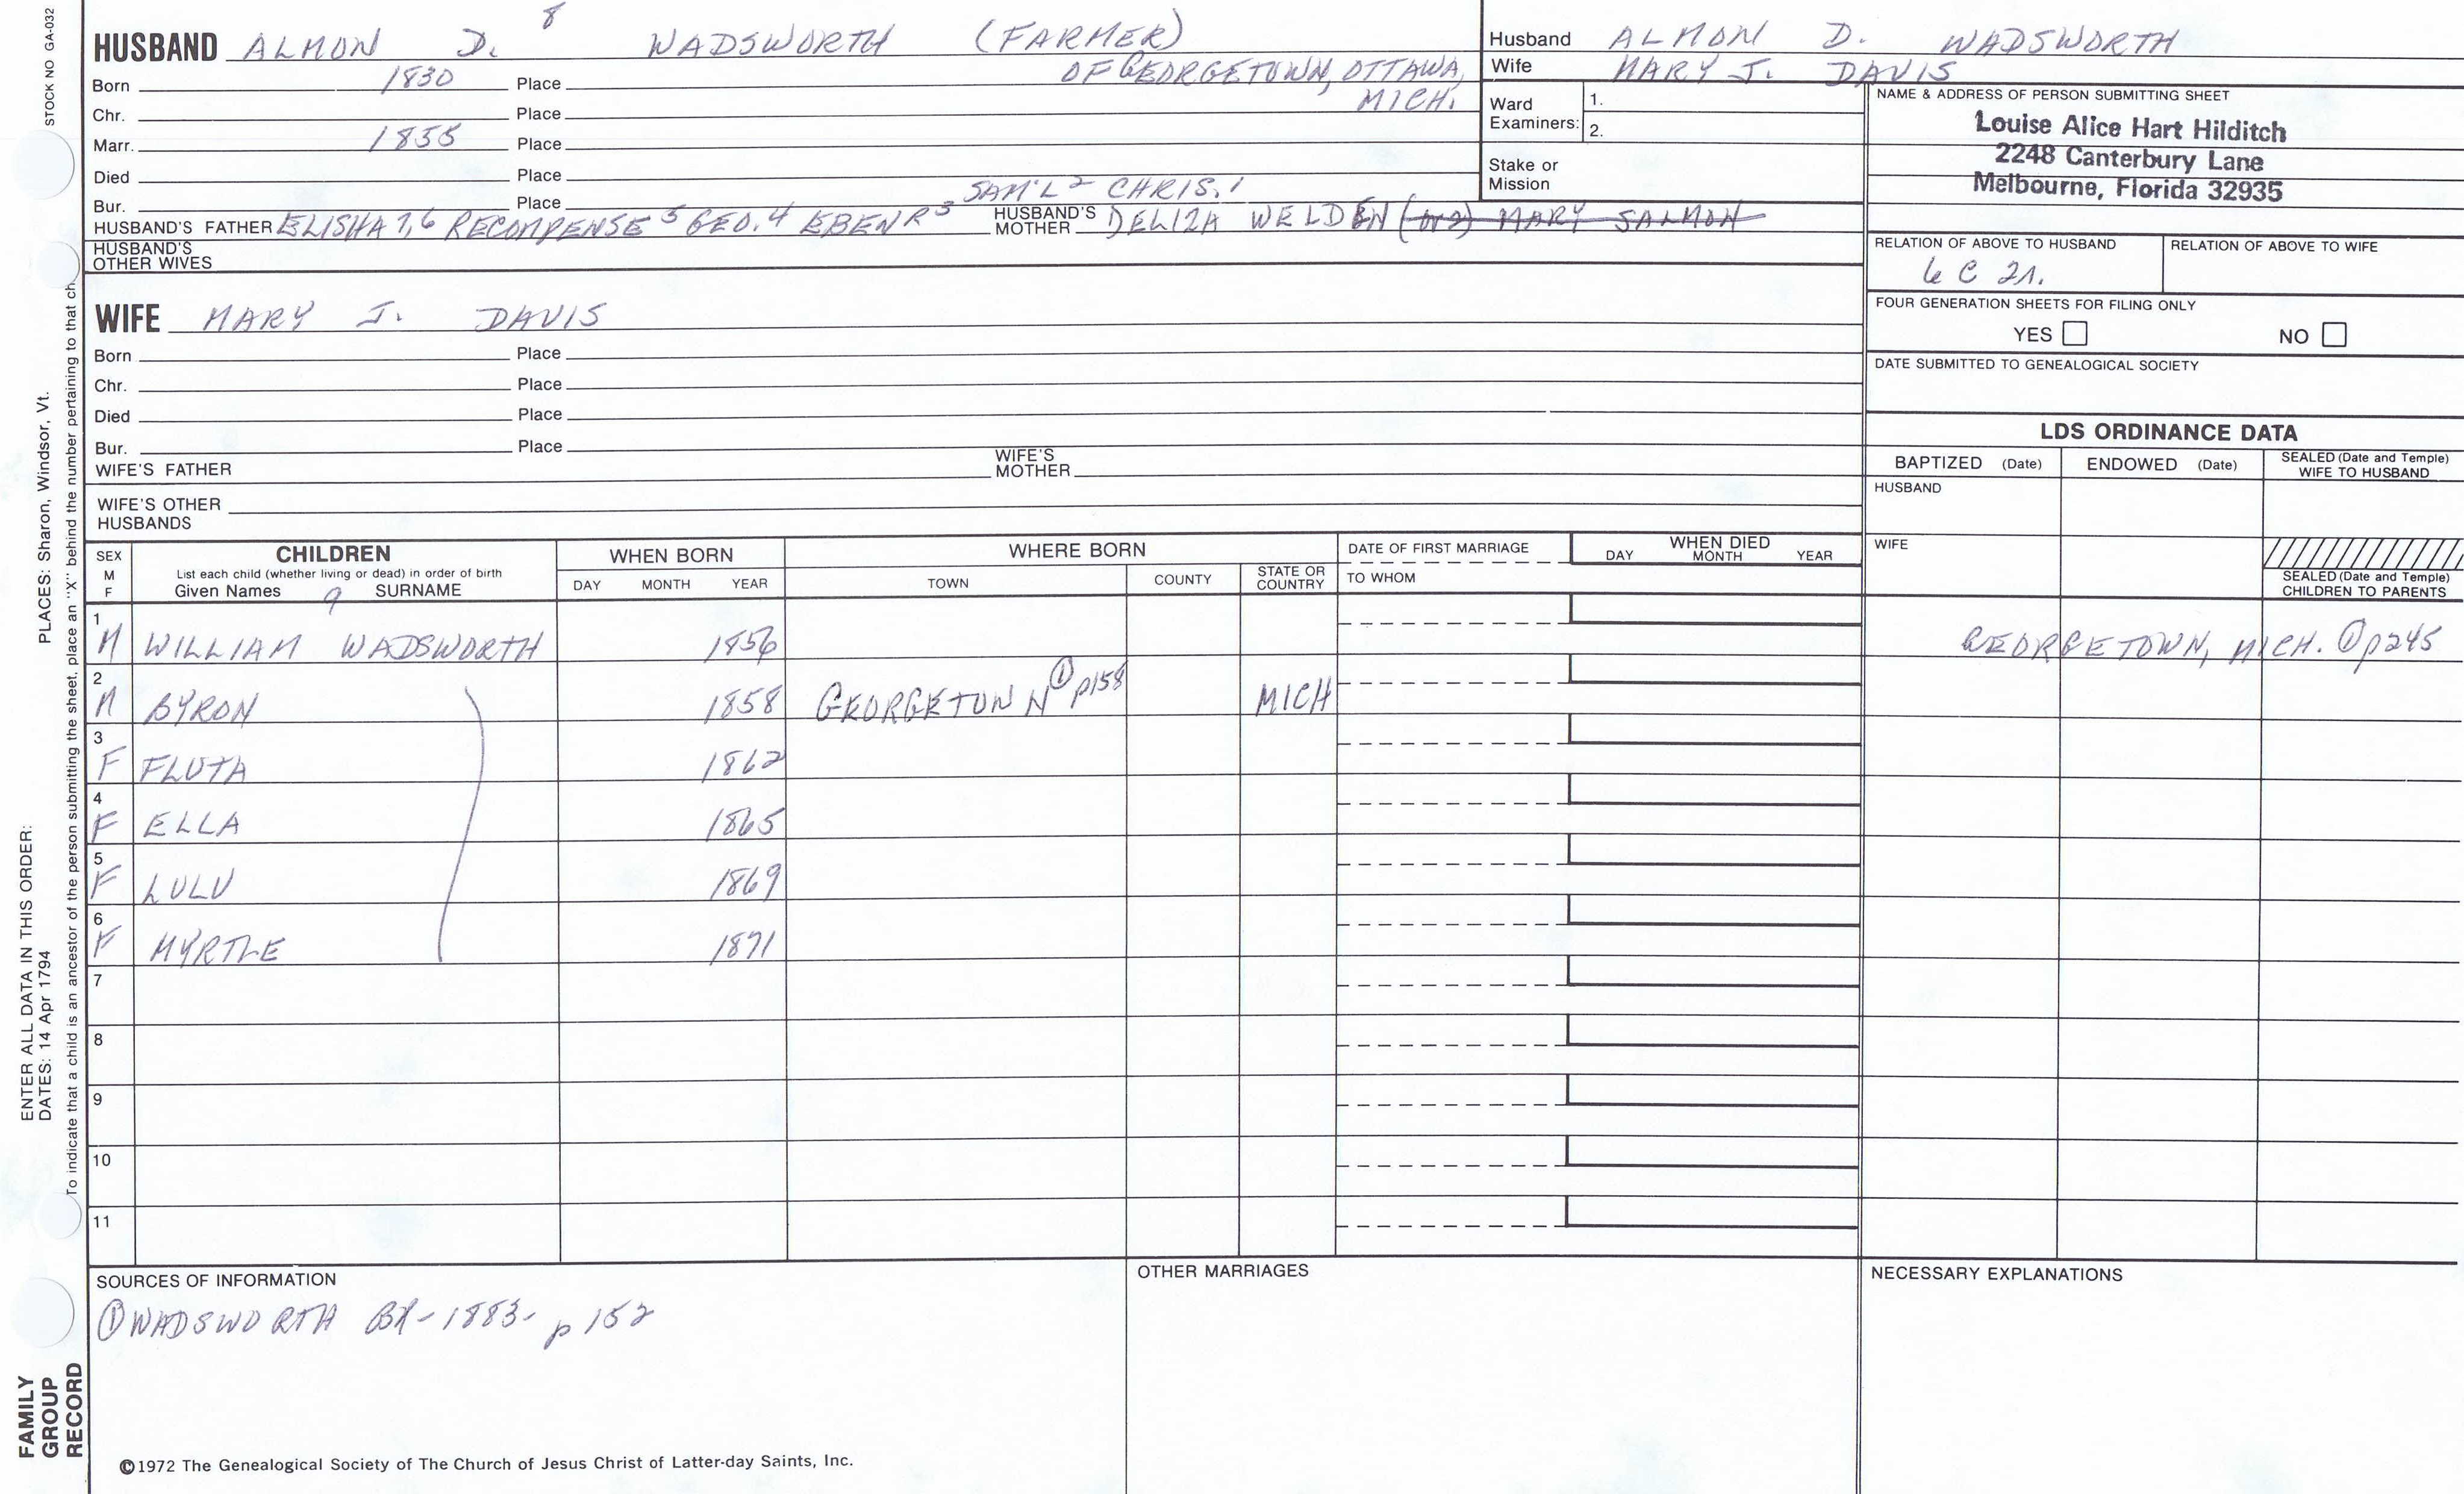 STOCK NO GA-032
8
HUSBAND ALMON D. WADSWORTH (FARMER)
Born 1830 Place OF GEORGETOWN, OTTAWA,
MICH.
Chr. Place
Marr. 1855 Place
Died Place
Bur. Place SAM'L 2 CHRIS. 1
HUSBAND'S FATHER ELISHA 7, 6 RECOMPENSE 5 GEO. 4 EBENR 3
HUSBAND'S MOTHER DELIZA WELDEN (or 2) MARY SALMON
HUSBAND'S
OTHER WIVES
WIFE MARY J. DAVIS
Born Place
Chr. Place
Died Place
Bur. Place
WIFE'S FATHER
WIFE'S
MOTHER
WIFE'S OTHER
HUSBANDS
Husband ALMON D. WADSWORTH
Wife MARY J. DAVIS
Ward
Examiners:
1.
2.
Stake or
Mission
NAME & ADDRESS OF PERSON SUBMITTING SHEET
Louise Alice Hart Hilditch
2248 Canterbury Lane
Melbourne, Florida 32935
RELATION OF ABOVE TO HUSBAND
6 C 2r.
RELATION OF ABOVE TO WIFE
FOUR GENERATION SHEETS FOR FILING ONLY
YES NO
DATE SUBMITTED TO GENEALOGICAL SOCIETY
LDS ORDINANCE DATA
BAPTIZED (Date) ENDOWED (Date) SEALED (Date and Temple)
WIFE TO HUSBAND
HUSBAND
WIFE
SEALED (Date and Temple)
CHILDREN TO PARENTS
SEX
M
F
CHILDREN
List each child (whether living or dead) in order of birth
Given Names 9 SURNAME
WHEN BORN
DAY MONTH YEAR
WHERE BORN
TOWN COUNTY STATE OR
COUNTRY
DATE OF FIRST MARRIAGE
TO WHOM
WHEN DIED
DAY MONTH YEAR
1 M WILLIAM WADSWORTH 1856 GEORGETOWN, MICH. ① p245
2 M BYRON 1858 GEORGETOWN ① p158 MICH
3 F FLUTA 1862
4 F ELLA 1865
5 F LULU 1869
6 F MYRTLE 1871
7
8
9
10
11
SOURCES OF INFORMATION
① WADSWORTH BK-1883- p 152
OTHER MARRIAGES
NECESSARY EXPLANATIONS
©1972 The Genealogical Society of The Church of Jesus Christ of Latter-day Saints, Inc.
ENTER ALL DATA IN THIS ORDER:
DATES: 14 Apr 1794 PLACES: Sharon, Windsor, Vt.
To indicate that a child is an ancestor of the person submitting the sheet, place an "X" behind the number pertaining to that ch
FAMILY
GROUP
RECORD